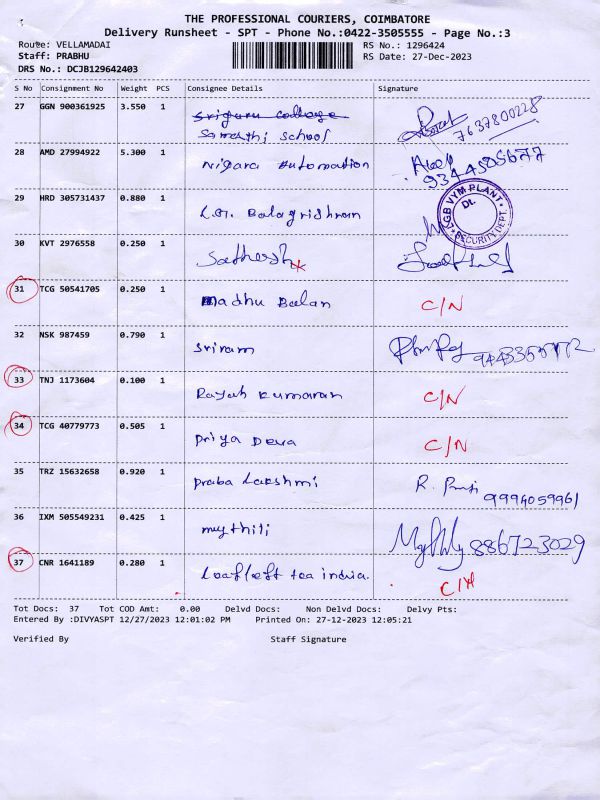 THE PROFESSIONAL COURIERS, COIMBATORE
Delivery Runsheet - SPT - Phone No.:0422-3505555 - Page No.:3
Route: VELLAMADAI RS No.: 1296424
Staff: PRABHU RS Date: 27-Dec-2023
DRS No.: DCJB129642403
S No Consignment No Weight PCS Consignee Details Signature
27 GGN 900361925 3.550 1
Samasthi School 7637800228
28 AMD 27994922 5.300 1 Nigara Automation
9344505677
29 HRD 305731437 0.880 1
LGB VYM PLANT
Dt.
SECURITY DEPT.
30 KVT 2976558 0.250 1 Sathesh
31 TCG 50541705 0.250 1 Madhu Balan C/N
32 NSK 987459 0.790 1 Sriram
33 TNJ 1173604 0.100 1 Kumaran C/N
34 TCG 40779773 0.505 1 Priya Deva C/N
35 TRZ 15632658 0.920 1 Praba Lakshmi R. 9994059961
36 IXM 505549231 0.425 1 mythili 886723029
37 CNR 1641189 0.280 1 Loafleft tea india. C/N
Tot Docs: 37 Tot COD Amt: 0.00 Delvd Docs: Non Delvd Docs: Delvy Pts:
Entered By :DIVYASPT 12/27/2023 12:01:02 PM Printed On: 27-12-2023 12:05:21
Verified By Staff Signature